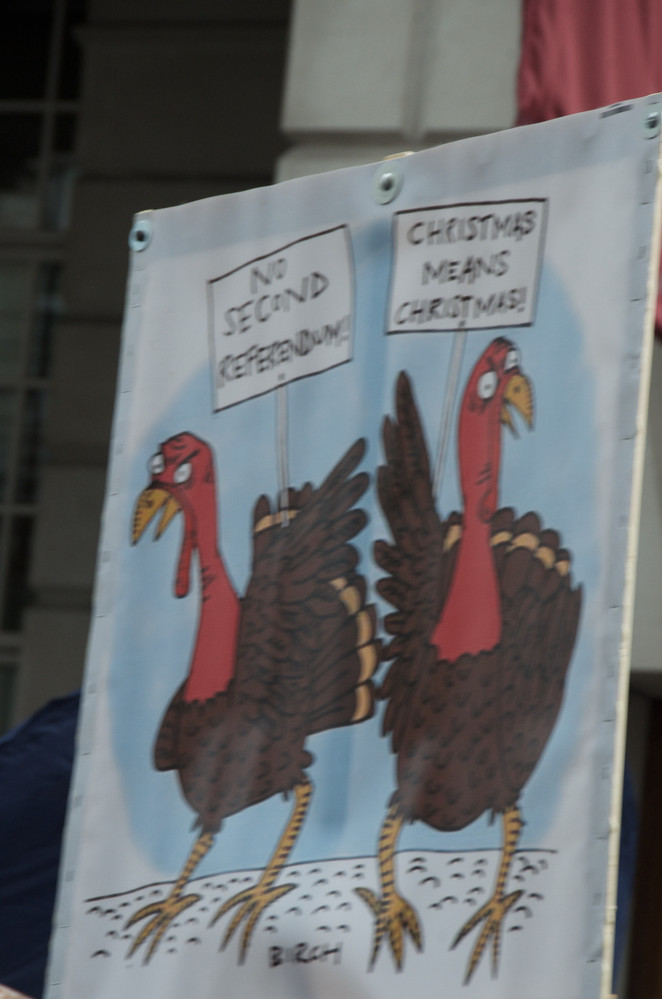 NO
SECOND
REFERENDUM!
CHRISTMAS
MEANS
CHRISTMAS!
BIRCH